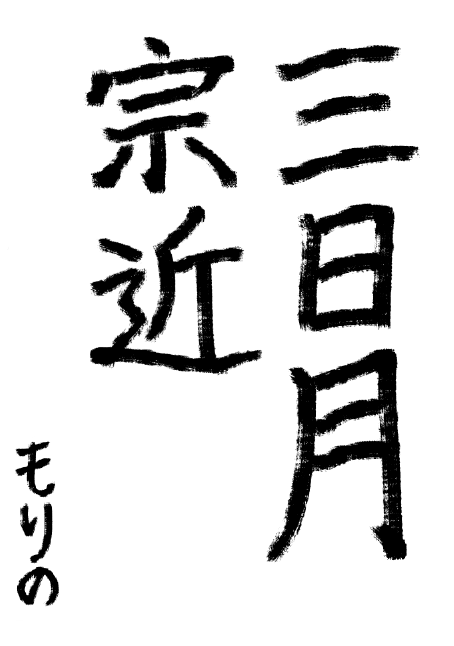 三日月
宗近
もりの